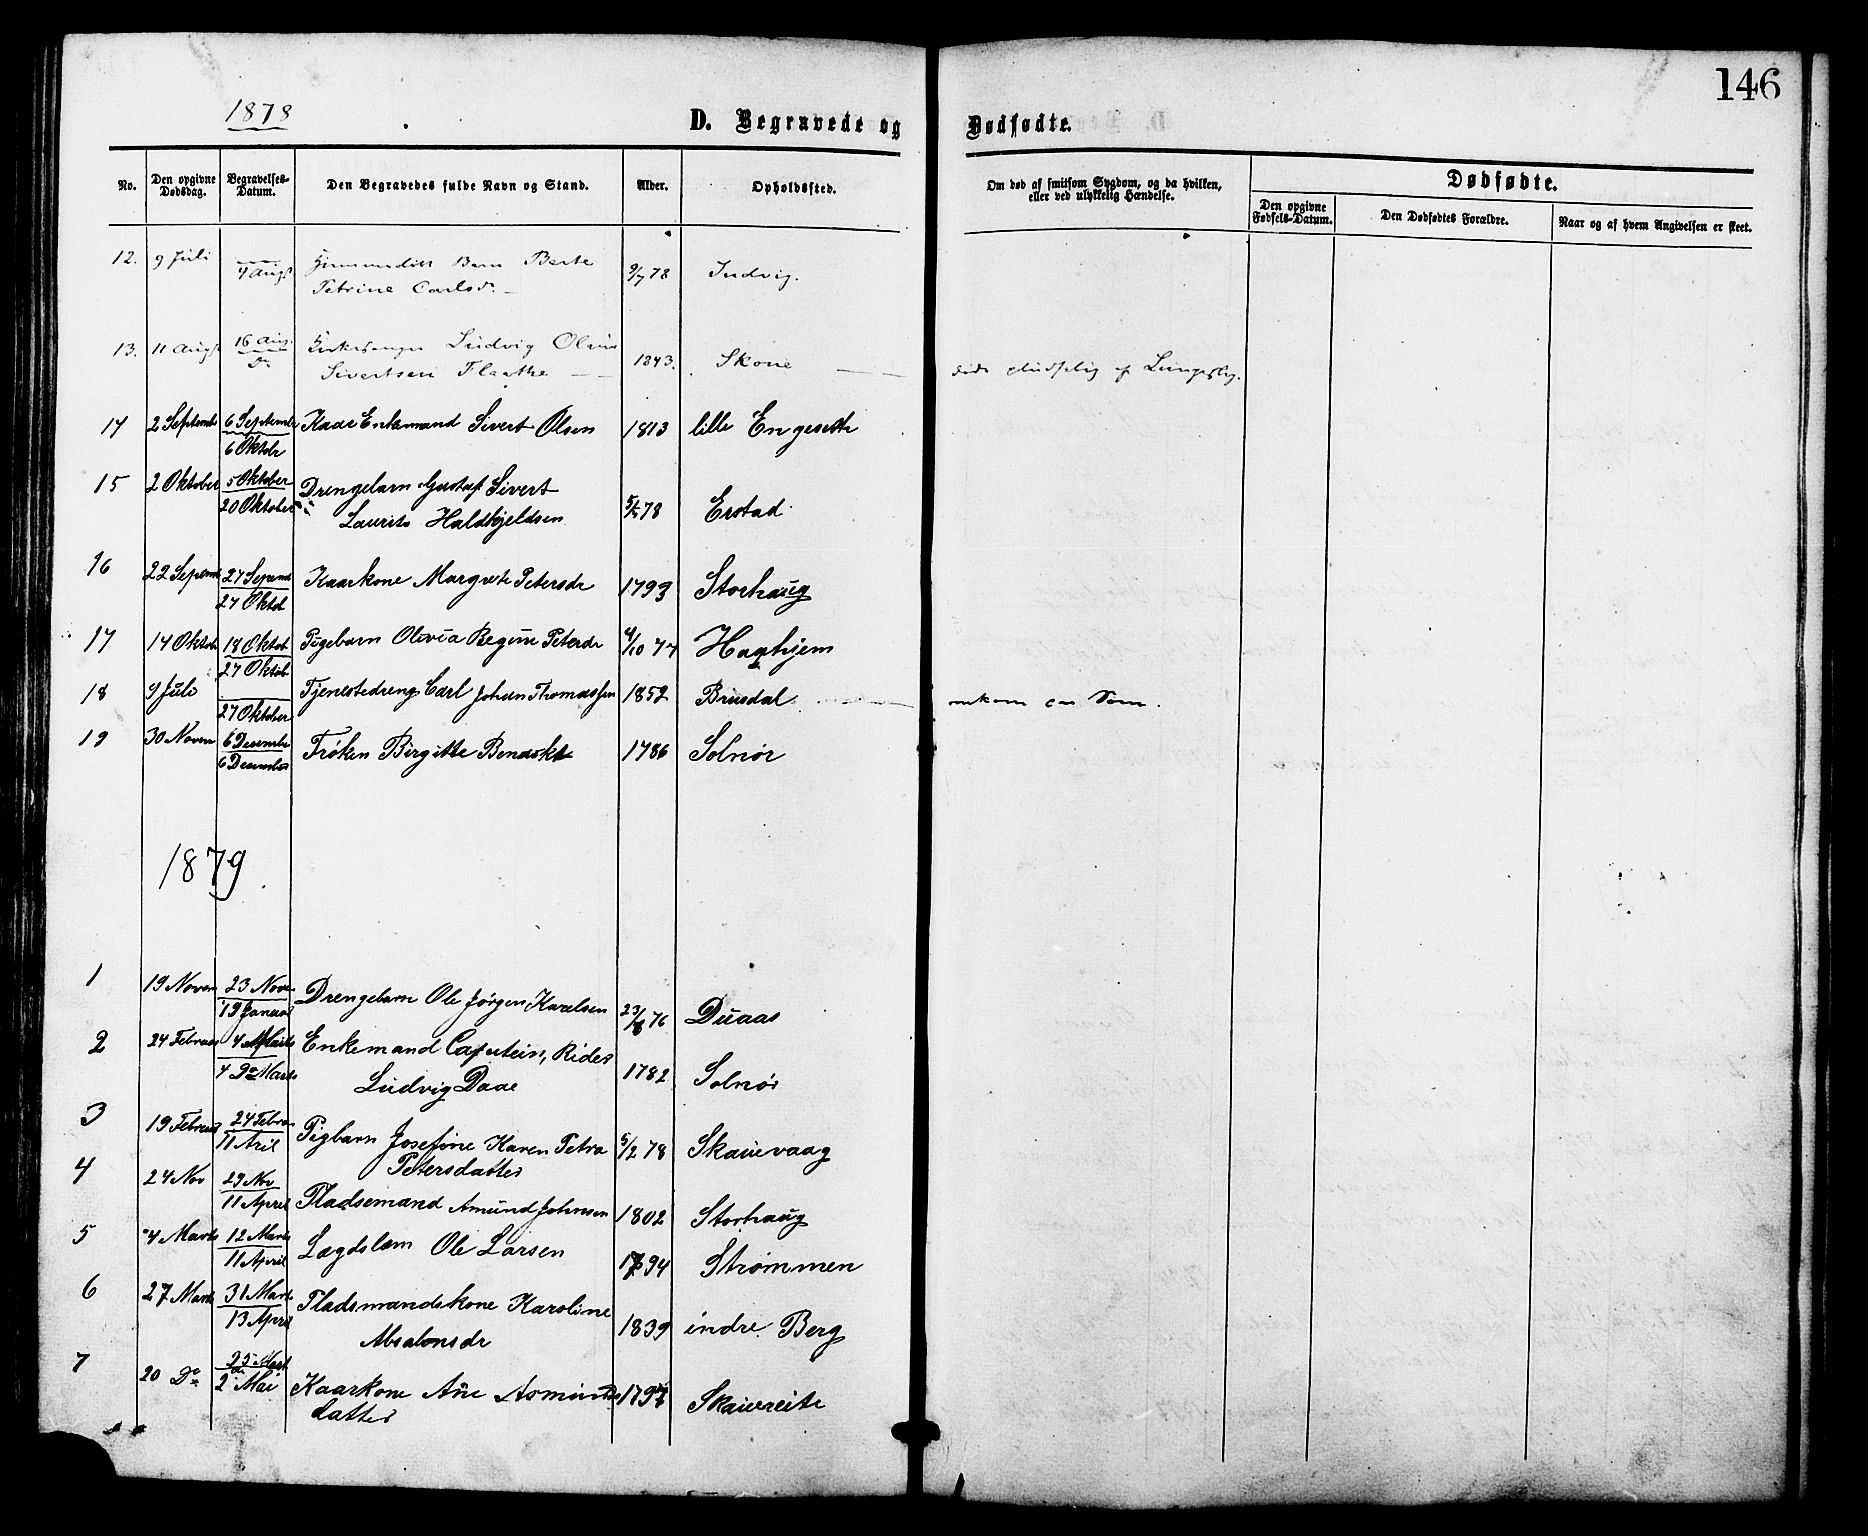 146
1878
D. Begravede og Dødfødte.
No. Den opgivne Dødsdag. Begravelses-Datum. Den Begravedes fulde Navn og Stand. Alder. Opholdssted. Om død af smitsom Sygdom, og da hvilken, eller ved ulykkelig Hændelse. Dødfødte.
Den opgivne Fødsels-Datum. Den Dødfødtes Forældre. Naar og af hvem Angivelsen er skeet.
12. 9 Juli 4 Augs Barn Berte 9/7 78 Indvig.
Petrine Carlsdr.
13. 11 Augs 16 Aug. Kirkesanger Ludvig Olaus 1843. Skone døde pludselig af
Do Sivertsen Flaathe
14 2 Septemb 6 Septembr Kaar Enkemand Sivert Olsen 1813 lille Engeseth
6 Oktobr
15 2 Oktober 5 Oktober Drengebarn Gustaf Sivert
20 Oktober Laurits Haldkjeldsen 5/5 78 Erstad
16 22 Septemb 27 Septemb Kaarkone Margrete Petersdr 1793 Storhaug
27 Oktob
17 14 Oktob 18 Oktob Pigebarn Olivia Regine Petersdr 4/10 77 Haghjem
27 Oktob
18 9 Juli Tjenestedreng Carl Johan Thomassen 1852 Brusdal omkom
27 Oktober
19 30 Novem 6 Decembr Frøken Birgitte 1786 Solnør
6 December
1879
1 19 Novem 23 Nove Drengebarn Ole Jørgen Karelsen 23/8 76 Duaas
19 Januar
2 24 Februar 4 Marts Enkemand Captein, Rider
4 Do Marts Ludvig Daae 1782 Solnør
3 19 Februar 24 Febru Pigbarn Josefine Karen Petra 5/2 78 Skauevaag
11 Aril Petersdatter
4 24 Nov 29 Nov Pladsemand Amund Johnsen 1802 Storhaug
11 April
5 4 Marts 12 Marts Lægdslem Ole Larsen 1794 Strømmen
11 April
6 27 Marts 31 Marts Pladsmandskone Karoline
13 April Absalonsdr 1839 indre Berg
7 20 Do 25 Mart
2 Mai Kaarkone Ane Asmunds Skauereite
datter